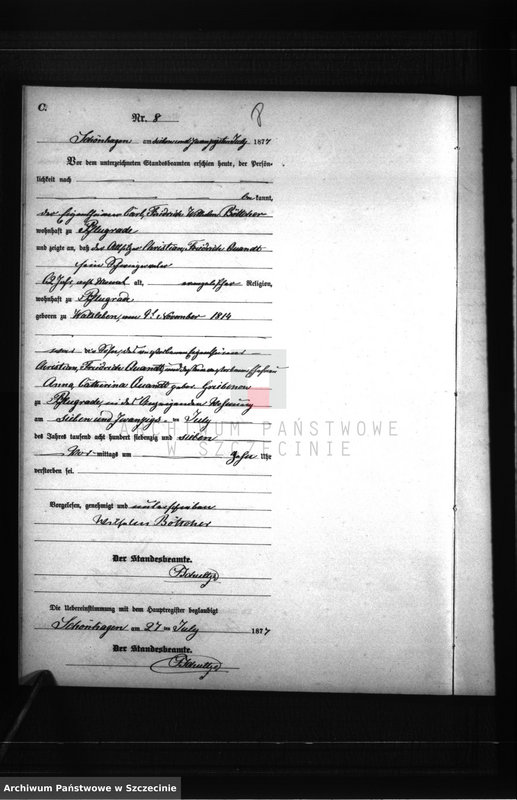 C.
8
Nr. 8
Schönhagen am sieben und zwanzigsten July 1877
Vor dem unterzeichneten Standesbeamten erschien heute, der Persön-
lichkeit nach
be kannt,
der Eigenthümer Carl, Friedrich Wilhelm Böttcher
wohnhaft zu Pflugrade
und zeigte an, daß der Altsitzer Christian, Friedrich Quandt
sein Schwiegervater
62 Jahr, acht Monat alt, evangelischer Religion,
wohnhaft zu Pflugrade
geboren zu Walsleben, am 9t November 1814
Sohn, des verstorbenen Eigenthümer
Christian, Friedrich Quandt und dessen verstorbenen Ehefrau
Anna, Catharina Quandt geborne
zu Pflugrade, in des Anzeigenden Wohnung
am sieben und zwanzig ten July
des Jahres tausend acht hundert siebenzig und sieben
Vor mittags um zehn Uhr
verstorben sei.
Vorgelesen, genehmigt und unterschrieben
Wilhelm Böttcher
Der Standesbeamte.
Die Uebereinstimmung mit dem Hauptregister beglaubigt
Schönhagen am 27 ten July 1877
Der Standesbeamte.
ARCHIWUM PAŃSTWOWE
W SZCZECINIE
Archiwum Państwowe w Szczecinie